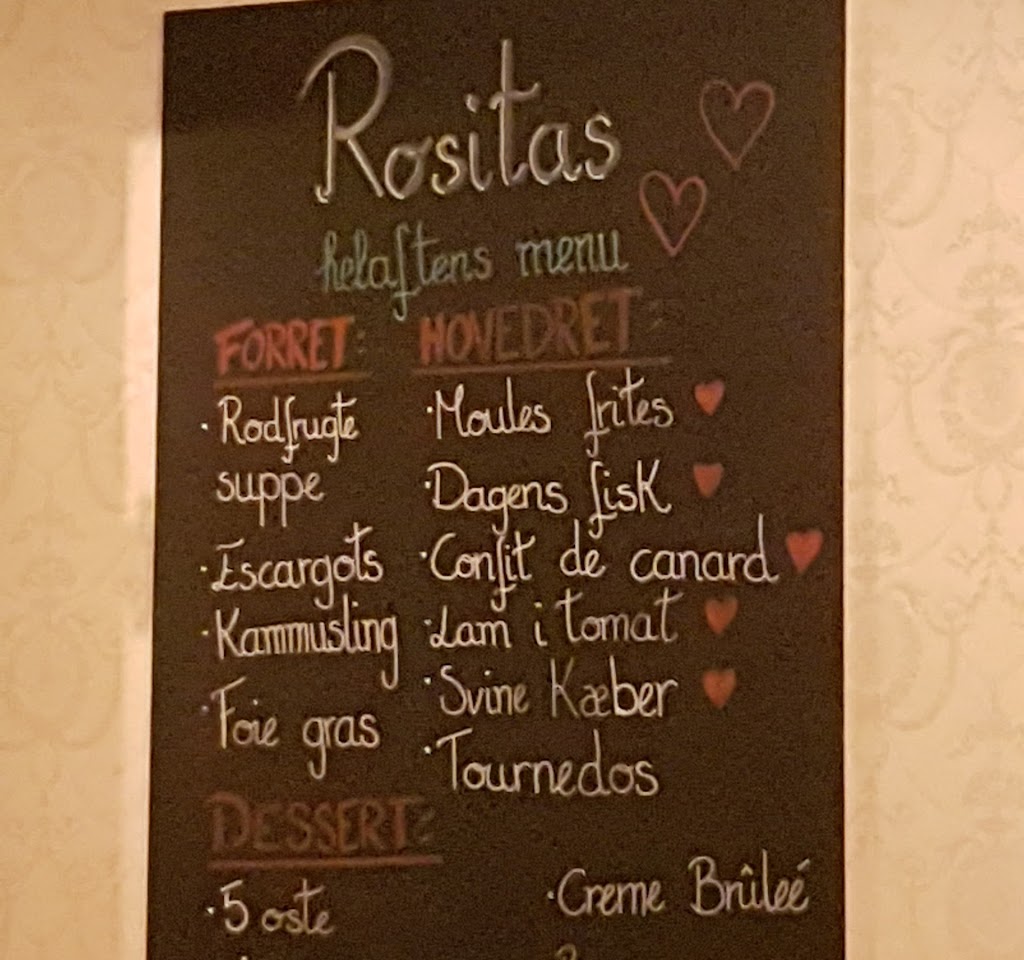 Rositas
helaftens menu
FORRET:
· Rodfrugte
suppe
· Escargots
· Kammusling
· Foie gras
HOVEDRET:
· Moules frites
· Dagens fisk
· Confit de canard
· Lam i tomat
· Svine Kæber
· Tournedos
DESSERT:
· 5 oste
· Creme Brûleé